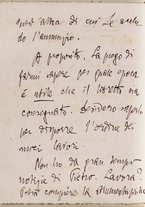 quest'altra di cui Le mando
do l'annunzio.
A proposito. La prego di
farmi sapere per quale epoca
è utile che il libretto sia
consegnato. Desidero saperlo
per disporre l'ordine dei
miei lavori.
Non ho da gran tempo
notizie di Pietro. Lavora?
Potrà compiere la